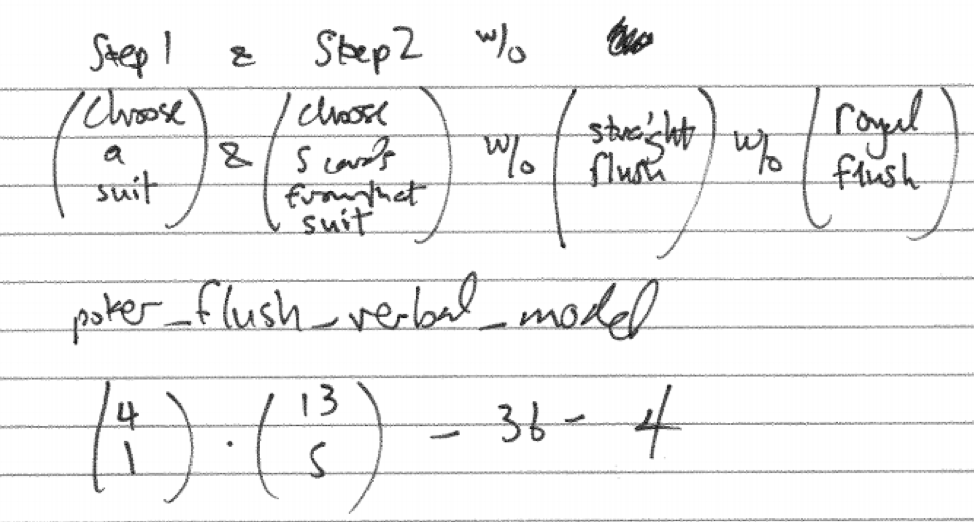 Step 1 & Step 2 w/o
(choose a suit) & (choose 5 cards from that suit) w/o (straight flush) w/o (royal flush)
poker_flush_verbal_model
(4 1) · (13 5) - 36 - 4